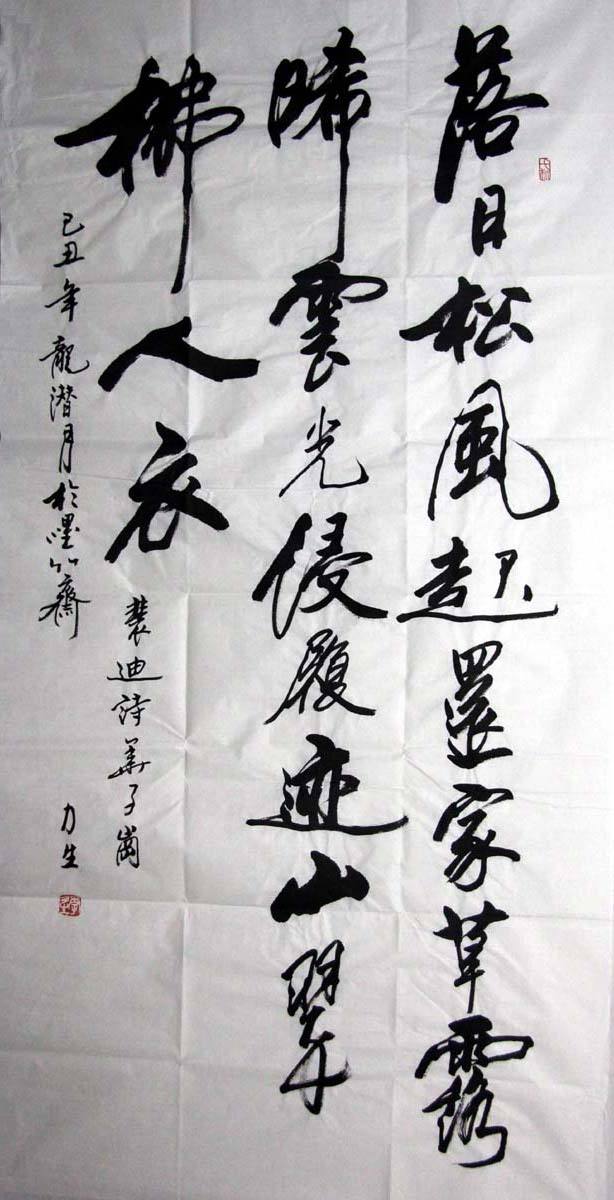 落日松風起還家草露
晞雲光侵履迹山翠
拂人衣
裴迪詩華子崗
己丑年龍潜月於墨竹齋
力生